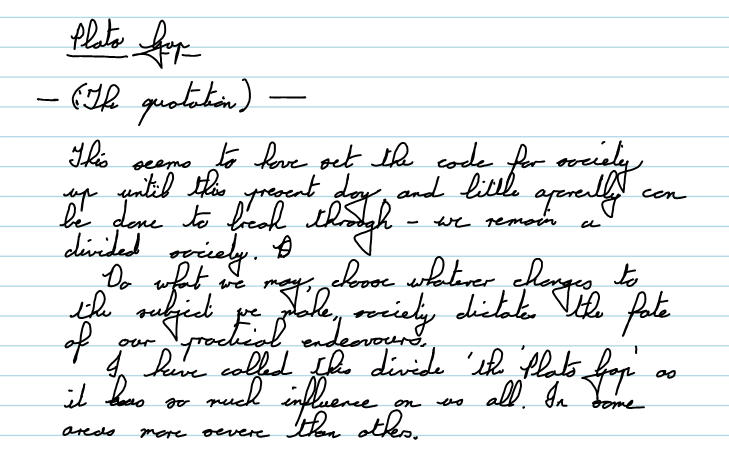 Plato Gap
— (The quotation) —
This seems to have set the code for society
up until this present day, and little aparently can
be done to break through - we remain a
divided society.
Do what we may, choose whatever changes to
the subject we make, society dictates the fate
of our practical endeavours.
I have called this divide 'the Plato Gap' as
it has so much influence on us all. In some
areas more severe than others.